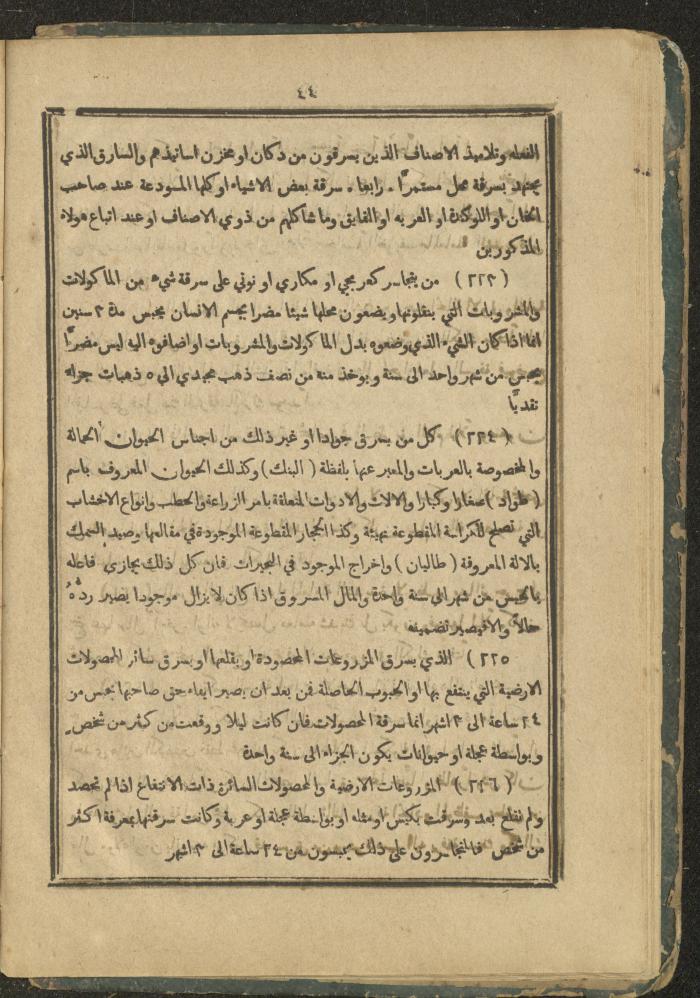 ٤٤
الفعله وتلاميذ الاصناف الذين يسرقون من دكان او مخزن اساتيذهم والسارق الذي
يجتهد بسرقة محل مستمرًّا . رابعا . سرقة بعض الاشياء او كلها المسودعة عند صاحب
الخان او اللوكندة او العربه او القايق وما شاكلهم من ذوي الاصناف او عند اتباع هولاء
المذكورين
(٢٢٣) من يتجاسر كعربجي او مكاري او نوتي على سرقة شيء من الماكولات
والمشروبات التي ينقلونها ويضعون محلها شيئا مضرا بجسم الانسان يحبس مدة ٣ سنين
انما اذا كان الشيء الذي وضعوه بدل الماكولات والمشروبات او اضافوه اليه ليس مضرًّا
يحبس من شهر واحد الى سنة ويوخذ منه من نصف ذهب مجيدي الى ٥ ذهبات جزاء
نقديًّا
(٢٢٤) كل من يسرق جوادا او غير ذلك من اجناس الحيوان الحمالة
والمخصوصة بالعربات والمعبر عنها بلفظة (البنك) وكذلك الحيوان المعروف باسم
(طوار) صغارا وكبارا والالات والادوات المتعلقة بامر الزراعة والحطب وانواع الاخشاب
التي تصلح للكراسة المقطوعة بهيئة وكذا الحجار المقطوعة الموجودة في مقالعها وصيد السمك
بالالة المعروفة (طاليان) واخراج الموجود في البحيرات فان كل ذلك يجازي فاعله
بالحبس من شهر الى سنة واحدة والمال المسروق اذا كان لا يزال موجودا يصير ردُّهُ
حالاً والا فيصير تضمينه
٢٢٥) الذي يسرق المزروعات المحصودة او يقلعها او يسرق سائر المحصولات
الارضية التي ينتفع بها او الحبوب الحاصلة فمن بعد ان يصير ايفاء حق صاحبها يحبس من
٢٤ ساعة الى ٣ اشهر انما سرقة المحصولات فان كانت ليلا ووقعت من كثر من شخص
وبواسطة عجلة او حيوانات يكون الجزاء الى سنة واحدة
(٢٢٦) المزروعات الارضية والمحصولات السائرة ذات الانتفاع اذا لم تحصد
ولم تقلع بعد وسرقت بكيس او مثله او بواسطة عجلة او عربة وكانت سرقتها بمعرفة اكثر
من شخص فالمتجاسرون على ذلك يحبسون من ٢٤ ساعة الى ٣ اشهر